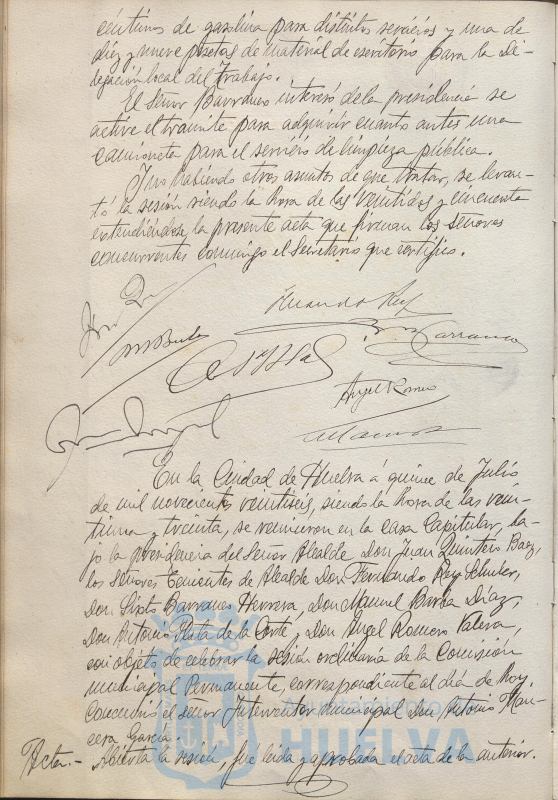 céntimos de gasolina para distintos servicios y una de
diez y nueve pesetas de material de escritorio para la De-
legación local del Trabajo.
El Señor Barranco interesó de la presidencia se
active el trámite para adquirir cuanto antes una
camioneta para el servicio de limpieza pública.
Y no habiendo otros asuntos de que tratar, se levan-
tó la sesión siendo la hora de las veintidos y cincuenta
extendiéndose la presente acta que firman los señores
concurrentes conmigo el Secretario que certifico.
Fernando Rey
Barranco
Angel Romero
En la Ciudad de Huelva á quince de Julio
de mil novecientos veintiseis, siendo la hora de las vein-
tiuna y treinta, se reunieron en la casa Capitular, ba-
jo la presidencia del Señor Alcalde Don Juan Quintero Baez,
los señores Tenientes de Alcalde Don Fernando Rey
Don Sixto Barranco Herrera, Don Manuel Barba Díaz,
Don Antonio de la Corte y Don Angel Romero Valera,
con objeto de celebrar la sesión ordinaria de la Comisión
municipal Permanente, correspondiente al día de hoy.
Concurrió el señor Interventor municipal Don Antonio Man-
cera García.
Acta.- Abierta la sesión, fué leida y aprobada el acta de la anterior.
Ayuntamiento
HUELVA